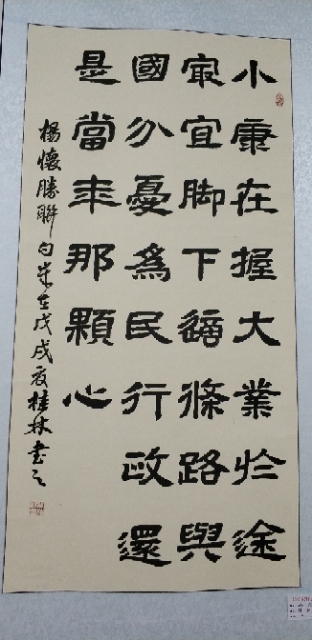 小康在握大業於途
冣宜脚下這條路與
國分憂為民行政還
是當年那顆心
楊懷勝聯句歲在戊戌夏桂林書之